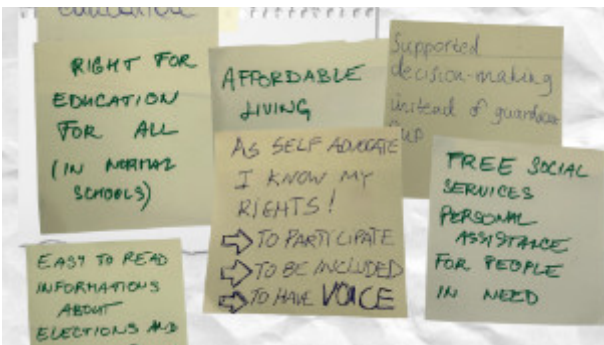 RIGHT FOR
EDUCATION
FOR ALL
(IN NORMAL
SCHOOLS)
AFFORDABLE
LIVING
Supported
decision-making
instead of
AS SELF ADVOCATE
I KNOW MY
RIGHTS!
⇨ TO PARTICIPATE
⇨ TO BE INCLUDED
⇨ TO HAVE VOICE
FREE SOCIAL
SERVICES
PERSONAL
ASSISTANCE
FOR PEOPLE
IN NEED
EASY TO READ
INFORMATIONS
ABOUT
ELECTIONS AND